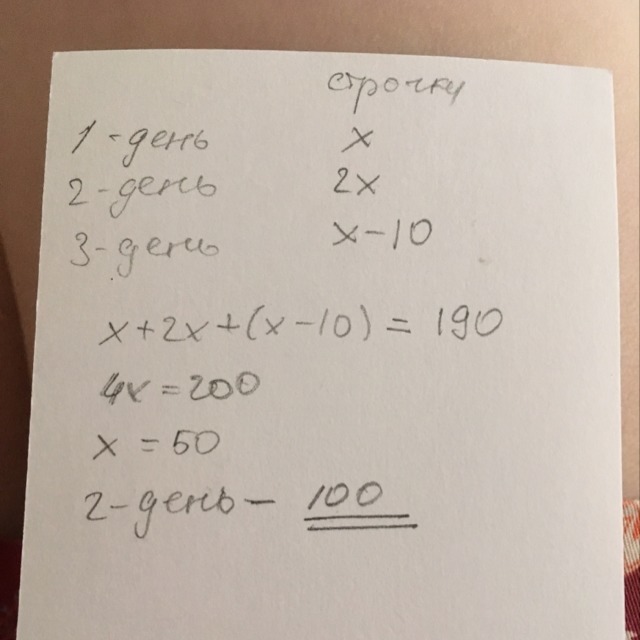 строчки
1-день x
2-день 2x
3-день x-10
x+2x+(x-10) = 190
4x=200
x = 50
2-день- 100